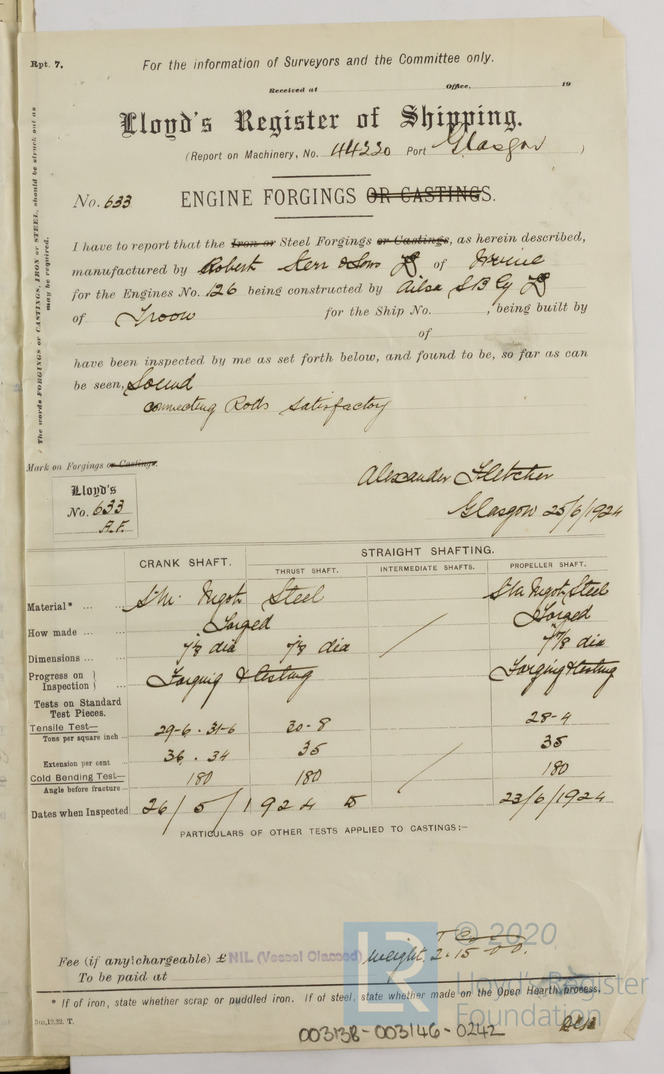 Rpt. 7.
For the information of Surveyors and the Committee only.
Received at Office, 19
Lloyd's Register of Shipping.
(Report on Machinery, No. 44220 Port Glasgow )
No. 633 ENGINE FORGINGS OR CASTINGS.
I have to report that the Iron or Steel Forgings or Castings, as herein described,
manufactured by Robert Kerr & Sons Ld of Irvine
for the Engines No. 126 being constructed by Ailsa S B Cy Ld
of Troon for the Ship No. , being built by
of
have been inspected by me as set forth below, and found to be, so far as can
be seen, Sound
connecting Rods satisfactory
The words FORGINGS or CASTINGS, IRON or STEEL, should be struck out as
may be required.
Mark on Forgings or Castings.
Lloyd's
No. 633
A.F.
Alexander Fletcher
Glasgow 25/6/1924
CRANK SHAFT. STRAIGHT SHAFTING.
THRUST SHAFT. INTERMEDIATE SHAFTS. PROPELLER SHAFT.
Material* ... Ingot Steel Ingot Steel
How made ... Forged Forged
Dimensions ... 7⅛ dia 7⅛ dia 7⅞ dia
Progress on Inspection } ... Forging & testing Forging & testing
Tests on Standard
Test Pieces.
Tensile Test— 29-6 . 31-6 30-8 28-4
Tons per square inch ...
Extension per cent 36 . 34 35 35
Cold Bending Test— 180 180 180
Angle before fracture—
Dates when Inspected 26/5/1924 23/6/1924
PARTICULARS OF OTHER TESTS APPLIED TO CASTINGS:—
Fee (if any chargeable) £ NIL (Vessel Classed) Weight, 2 . 15 - 00.
To be paid at
* If of iron, state whether scrap or puddled iron. If of steel, state whether made on the Open Hearth process.
© 2020
LR
Lloyd's Register
Foundation
003138-003146-0242